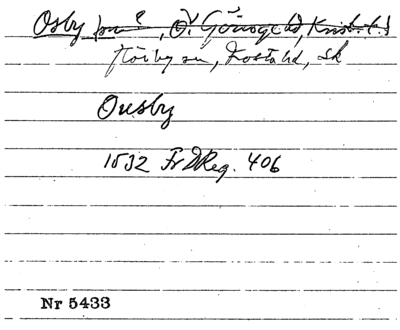 Osby sn?, Ö. Göinge hd, Krist. l.
Förby sn, Frosta hd, Sk
Ousby
1532 FrDReg. 406
Nr 5433